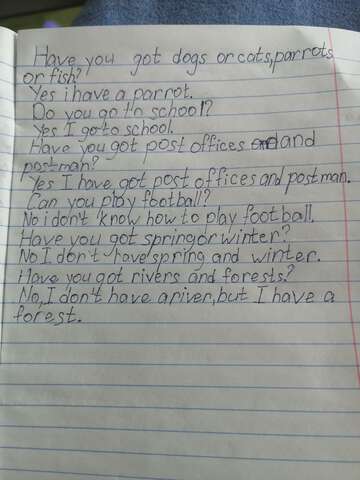 Have you got dogs or cats,parrots
or fish?
Yes i have a parrot.
Do you go tn school?
Yes I go to school.
Have you got post offices and and
postman?
Yes I have got post offices and postman.
Can you play football?
No i don't know how to play football.
Have you got spring or winter?
No I don't have spring and winter.
Have you got rivers and forests?
No, I don't have a river, but I have a
forest.